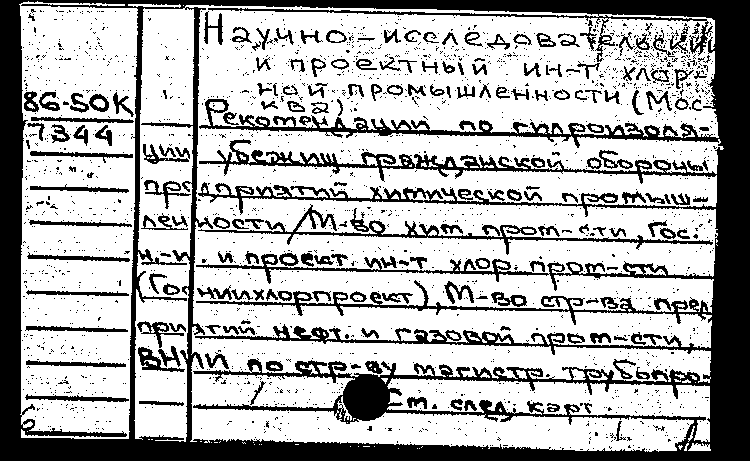 Научно-исследовательский
и проектный ин-т хлор-
ной промышленности (Мос-
ква).
86-50К
7344
Рекомендации по гидроизоля-
ции убежищ гражданской обороны
предприятий химической промыш-
ленности / М-во хим. пром-сти, Гос.
н.-и. и проект. ин-т хлор. пром-сти
(Госниихлорпроект), М-во стр-ва пред
приятий нефт. и газовой пром-сти,
ВНИИ по стр-ву магистр. трубопро-
См. след. карт.